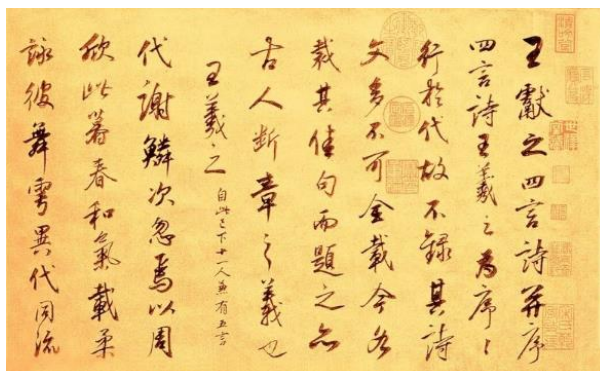 王獻之四言詩并序
四言詩王羲之為序序
行於代故不錄其詩
文多不可全載今各
裁其佳句而題之亦
古人斷章之義也
王羲之 自此已下十一人兼有五言
代謝鱗次忽焉以周
欣此暮春和氣載柔
詠彼舞雩異代同流